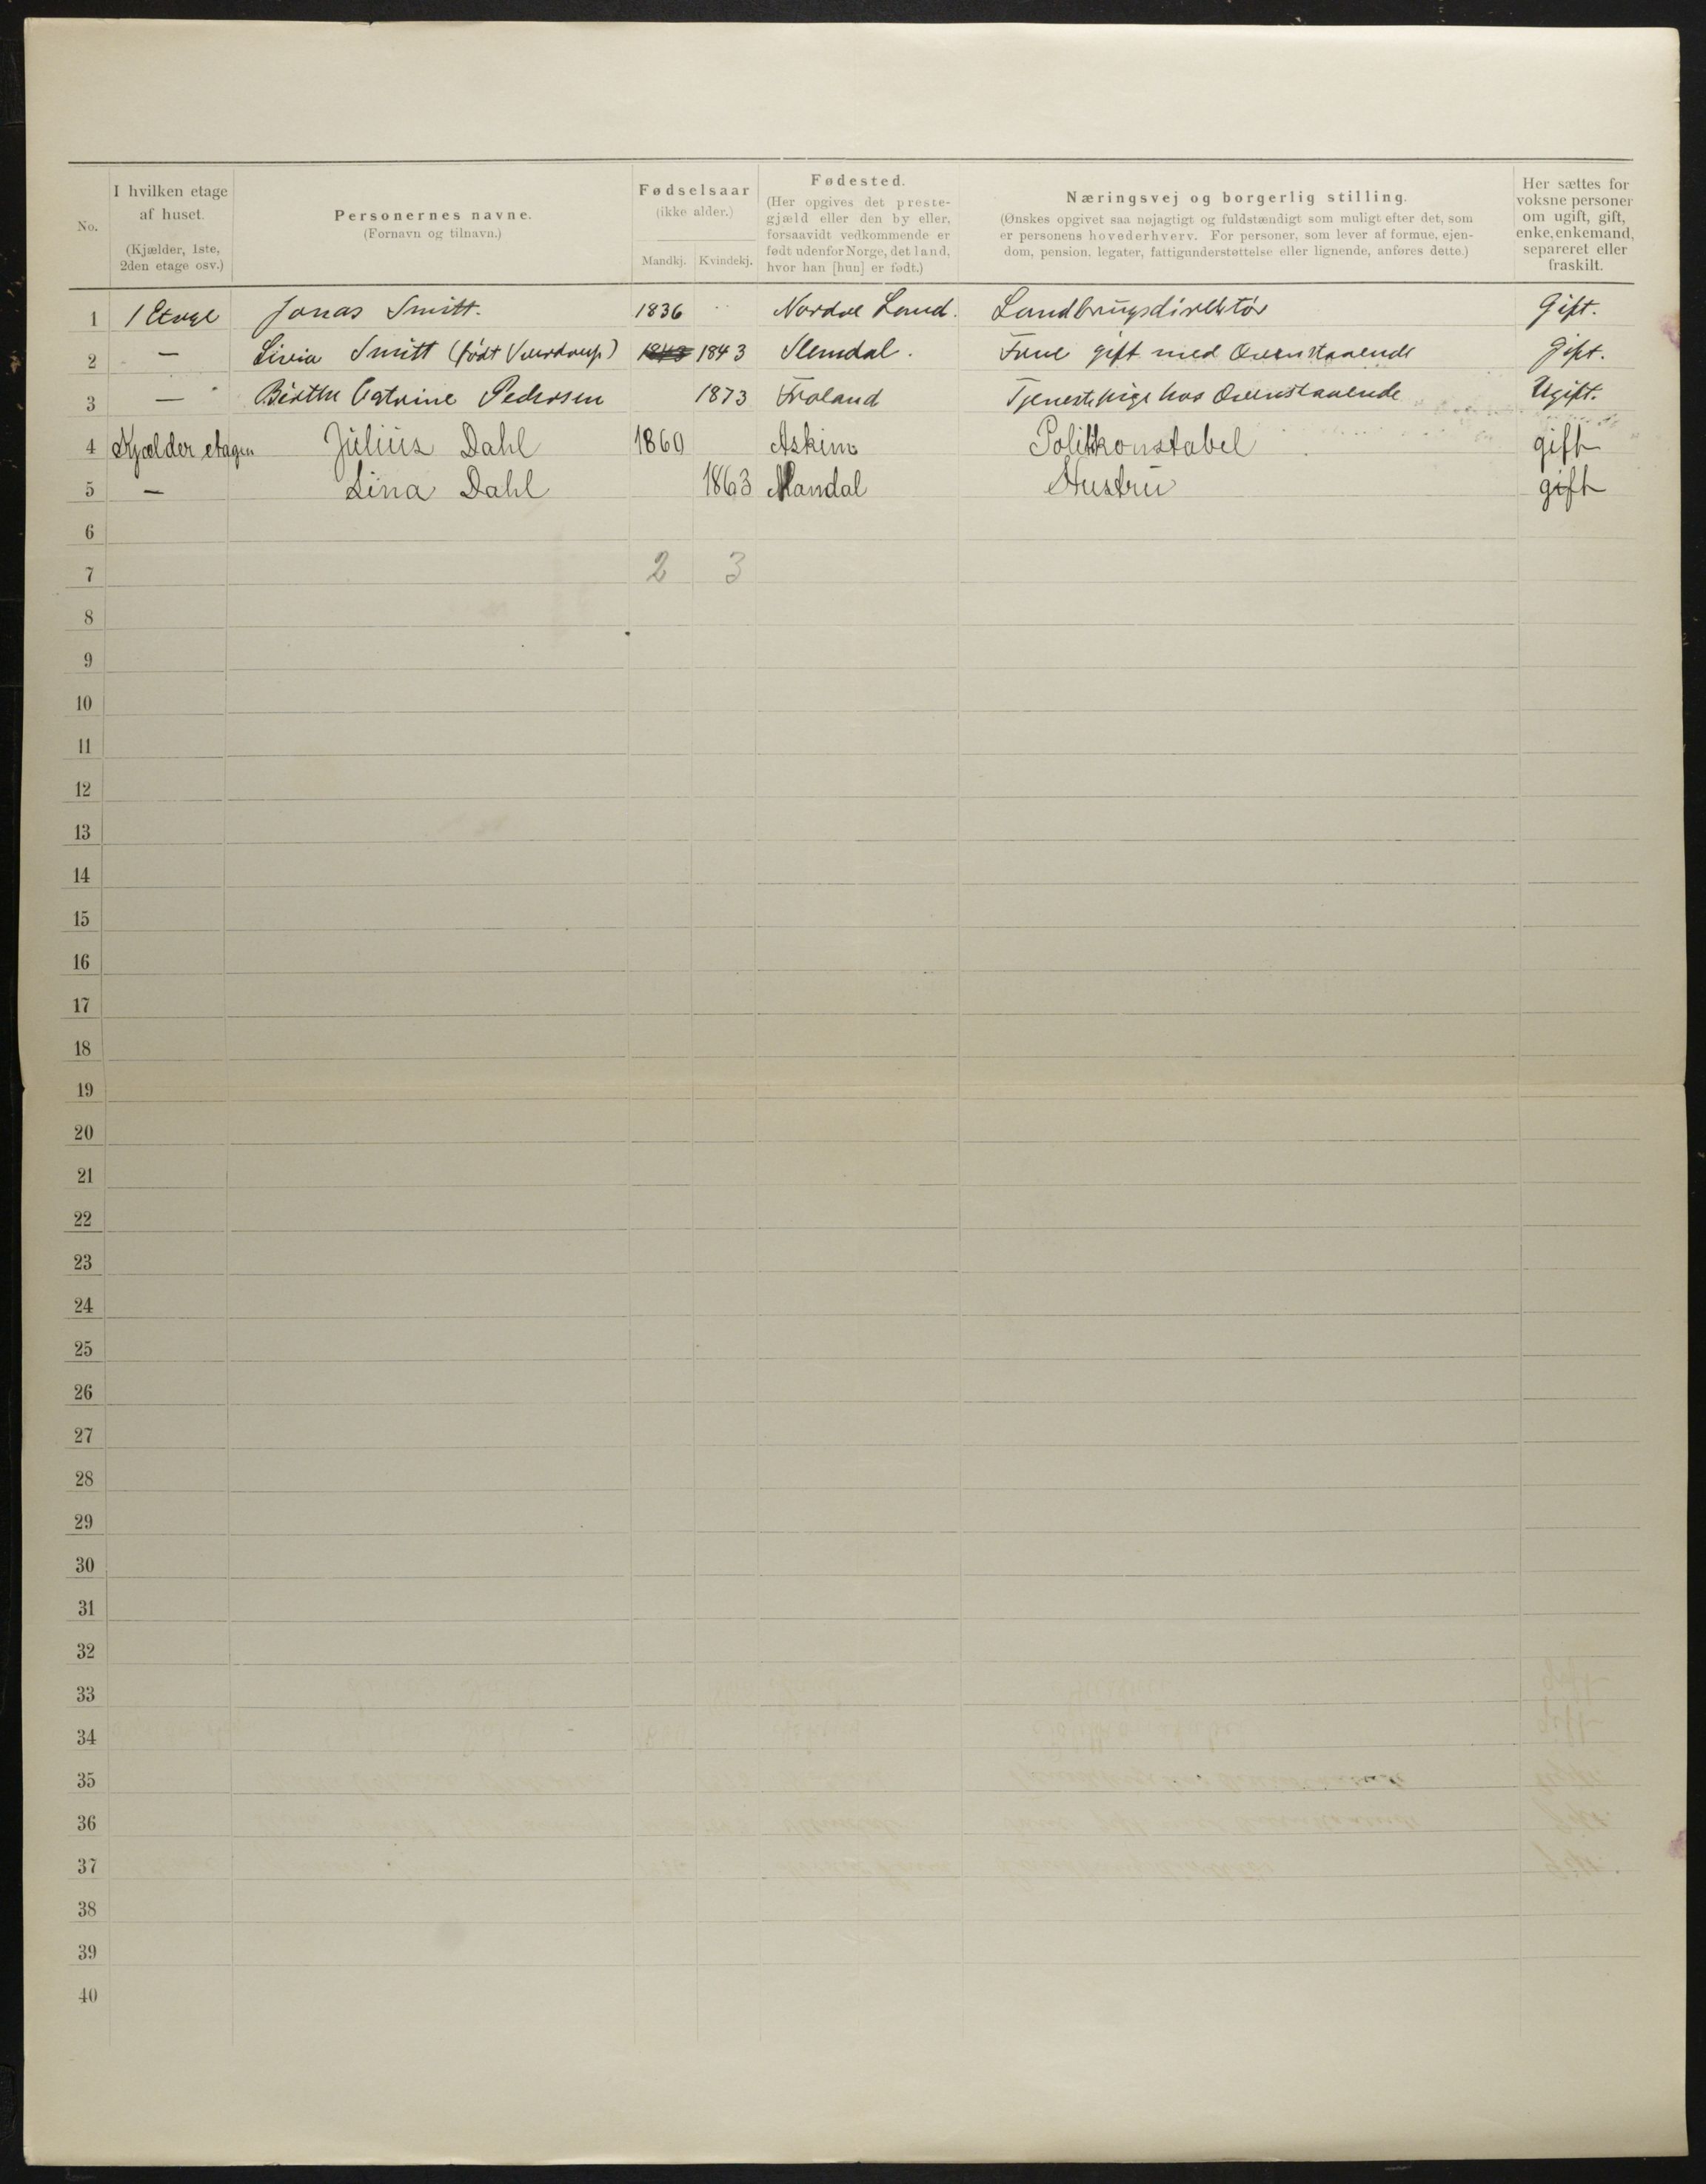 No.
I hvilken etage
af huset.
(Kjælder, 1ste,
2den etage osv.)
Personernes navne.
(Fornavn og tilnavn.)
Fødselsaar
(ikke alder.)
Mandkj. Kvindekj.
Fødested.
(Her opgives det preste-
gjæld eller den by eller,
forsaavidt vedkommende er
født udenfor Norge, det land,
hvor han [hun] er født.)
Næringsvej og borgerlig stilling.
(Ønskes opgivet saa nøjagtigt og fuldstændigt som muligt efter det, som
er personens hovederhverv. For personer, som lever af formue, ejen-
dom, pension, legater, fattigunderstøttelse eller lignende, anføres dette.)
Her sættes for
voksne personer
om ugift, gift,
enke, enkemand,
separeret eller
fraskilt.
1 1 Etage Jonas Smitt. 1836 Nordre Land. Landbrugsdirektør Gift.
2 — Livia Smitt (født 1843 1843 Slemdal. Frue gift med Ovenstaaende Gift.
3 — Birthe Catrine Pedersen 1873 Froland Tjenestepige hos Ovenstaaende Ugift.
4 Kjælder etagen Julius Dahl 1860 Askim Politikonstabel gift
5 — Lina Dahl 1863 Mandal Hustru gift
6
7 2 3
8
9
10
11
12
13
14
15
16
17
18
19
20
21
22
23
24
25
26
27
28
29
30
31
32
33
34
35
36
37
38
39
40